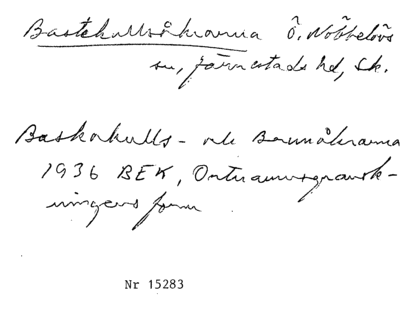 Bastekullsåkrarna Ö. Nöbbelövs
sn, Järrestads hd, Sk.
Baskakulls- och Bermåkrarna
1936 BEK, Ortnamnsgransk-
ningens form
Nr 15283